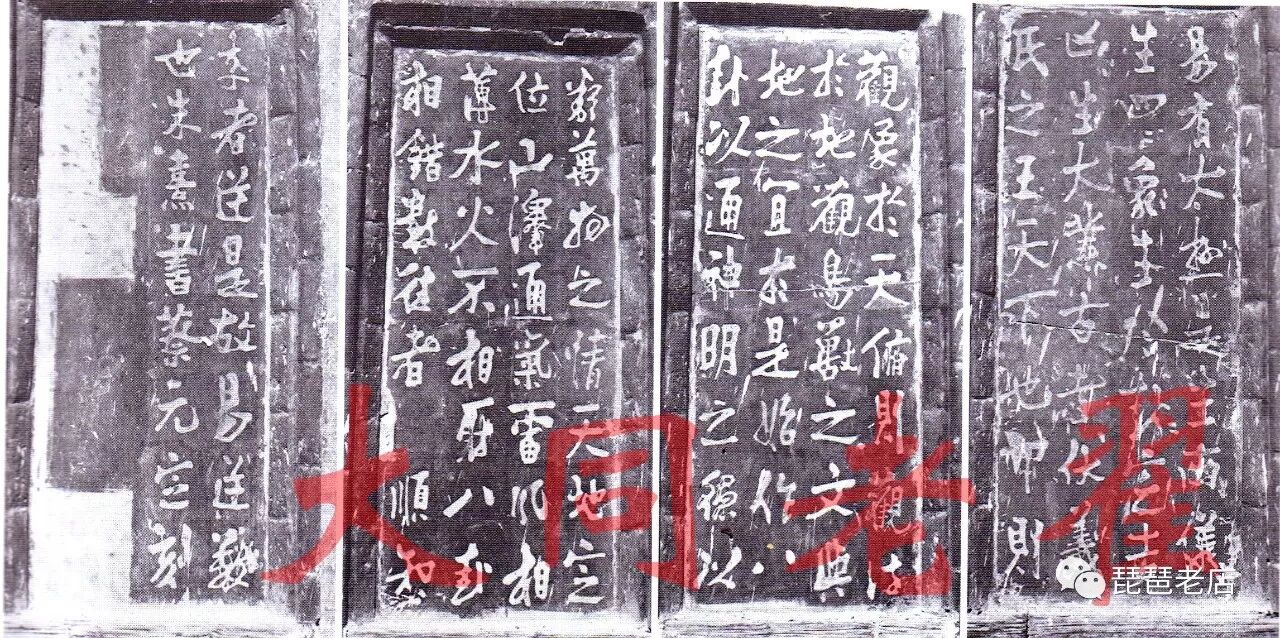 易有太極是生兩儀
生四象生八卦定吉
凶生大業古者伏羲
氏之王天下也仰則
觀象於天俯則觀法
於地觀鳥獸之文與
地之宜於是始作八
卦以通神明之德以
類萬物之情天地定
位山澤通氣雷風相
薄水火不相射八卦
相錯數往者順知
來者逆是故易逆數
也朱熹書蔡元定刻
大同老翟
琵琶老店